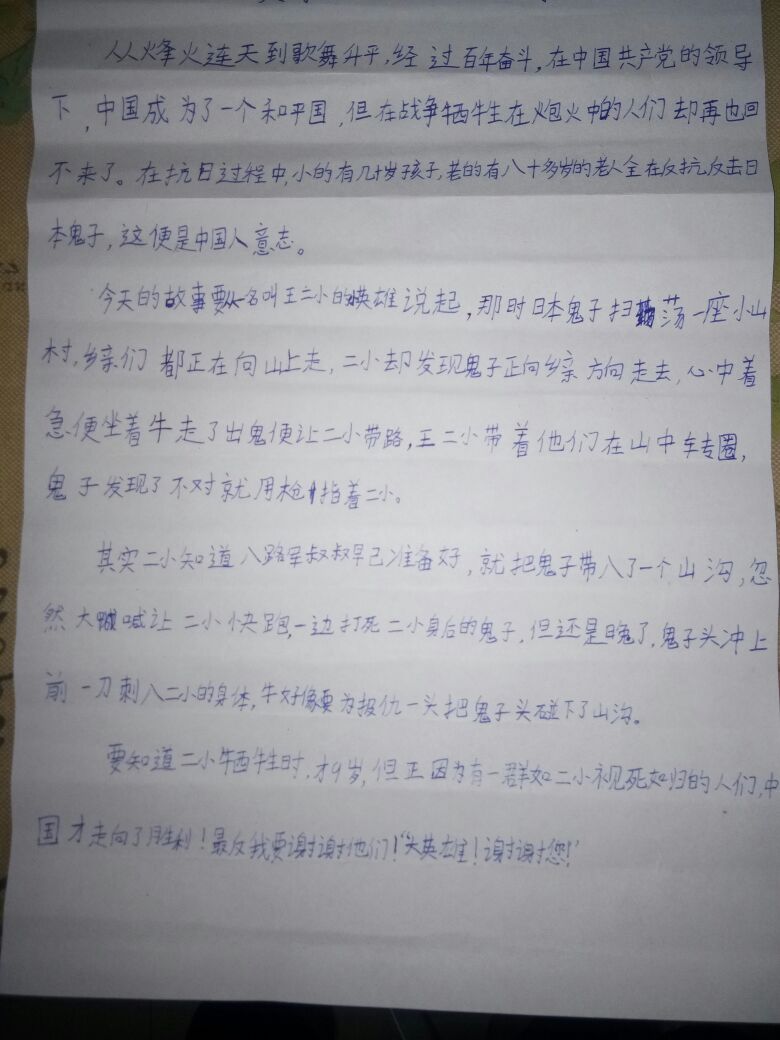 从烽火连天到歌舞升平,经过百年奋斗,在中国共产党的领导
下,中国成为了一个和平国,但在战争牺牲在炮火中的人们却再也回
不来了。在抗日过程中,小的有几十岁孩子,老的有八十多岁的老人全在反抗反击日
本鬼子,这便是中国人意志。
今天的故事要从一名叫王二小的英雄说起,那时日本鬼子扫荡一座小山
村,乡亲们都正在向山上走,二小却发现鬼子正向乡亲方向走去,心中着
急便坐着牛走了出鬼便让二小带路,王二小带着他们在山中转圈,
鬼子发现了不对就用枪指着二小。
其实二小知道八路军叔叔早已准备好,就把鬼子带入了一个山沟,忽
然大喊让二小快跑,一边打死二小身后的鬼子,但还是晚了,鬼子头冲上
前一刀刺入二小的身体,牛好像要为报仇一头把鬼子头碰下了山沟。
要知道二小牺牲时,才9岁,但正因为有一群如二小视死如归的人们,中
国才走向了胜利!最后我要谢谢他们!“大英雄!谢谢您!”